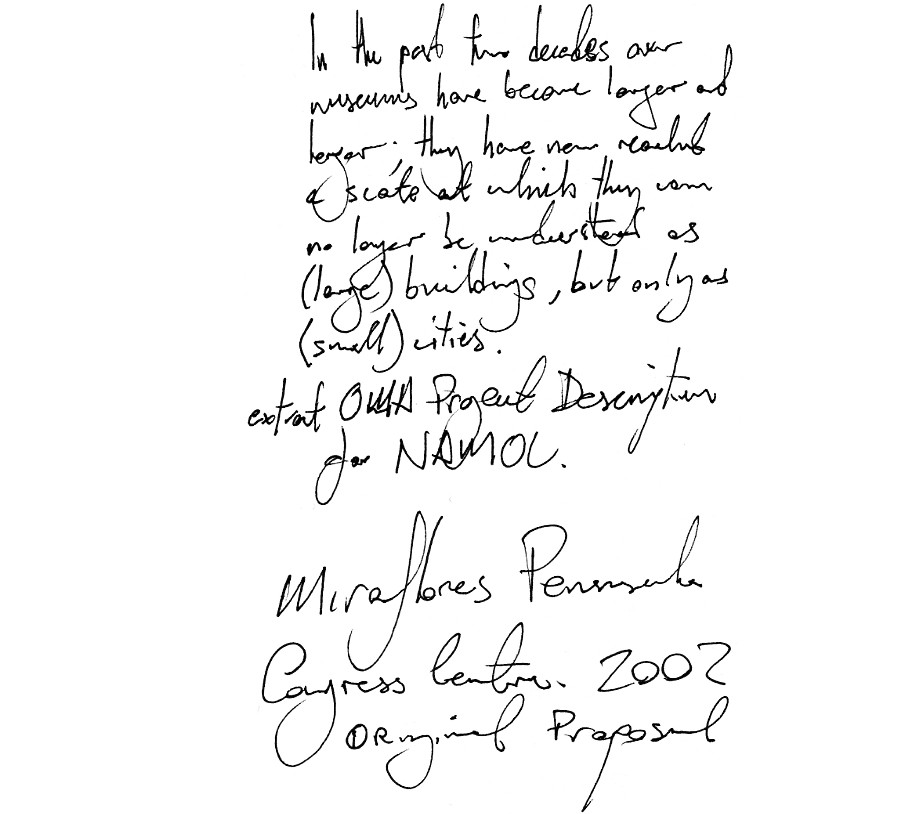 In the past two decades over
museums have become larger and
larger; they have now reached
a scale at which they can
no longer be understood as
(large) buildings, but only as
(small) cities.
extract OMA Project Description
for NAMOC.
Miraflores Peninsula
Congress Centre. 2002
Original Proposal